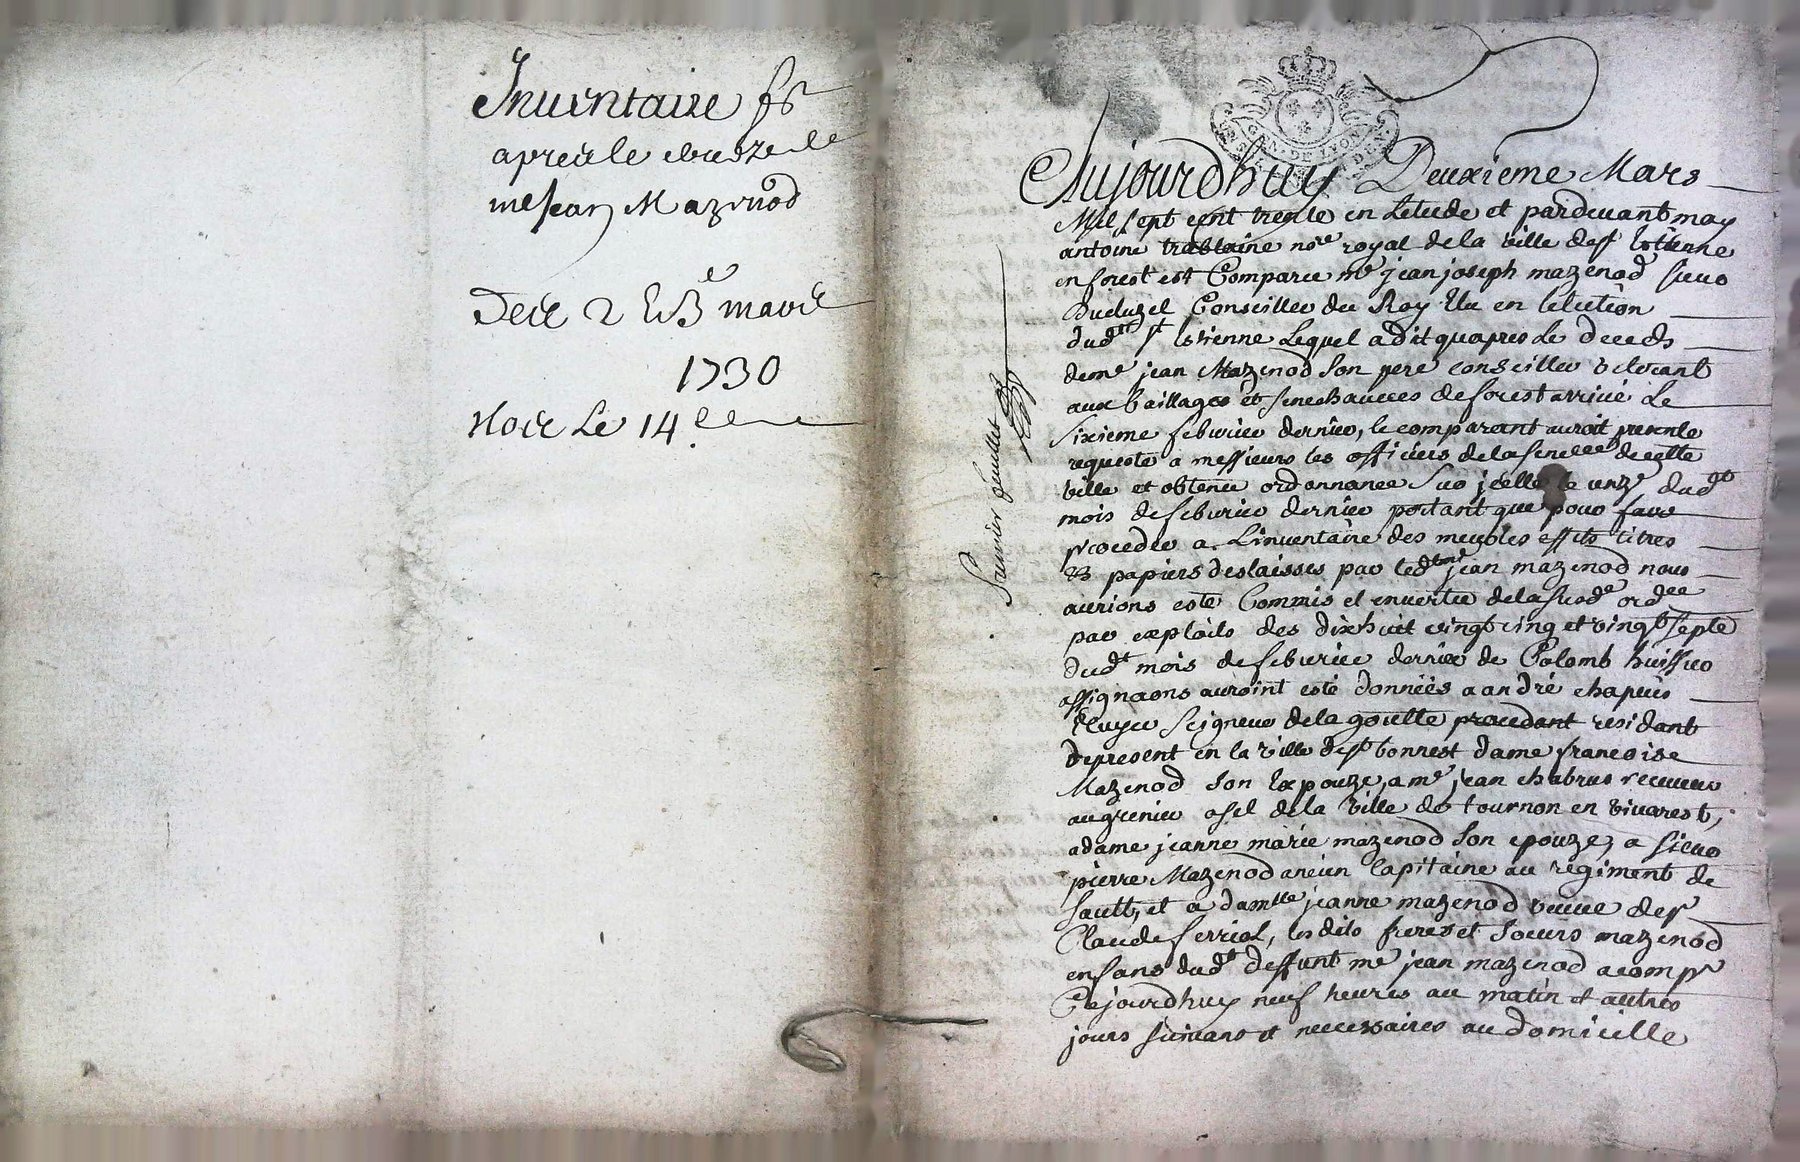 Inventaire
apres le deces de
me Jean Mazenod
Des 2 et 3e mars
1730
Nore Le 14
GEN. DE LYON
Premier feuillet
Aujourdhuy Deuxieme Mars
Mil sept cent trente en Letude et pardevant moy
antoine trablaine nore royal de la ville de st Estienne
en forest est Comparu me jean joseph mazenod sieur
Duduzel Conseiller du Roy Elu en lelection
dud st Estienne Lequel a dit quapres Le deceds
de me jean Mazenod son pere conseiller veterant
aux bailliages et senechaucees de forest arrivé Le
sixieme feburier dernier, le comparant auroit presenté
requeste a messieurs les officiers de la senelle de cette
ville et obtenu ordonnance sur jcelle le unze dud
mois de feburier dernier portant que pour faire
proceder a Linventaire des meubles effets titres
& papiers deslaisses par led me jean mazenod nous
aurions esté Commis et en vertu de la susde ordce
par exploits des dixhuit vingt cinq et vingt septe
dudt mois de feburier dernier de Colomb huissier
assignaons auroint esté données a andré chapuis
Seigneur de la goutte procedant residant
de present en la ville de st bonnest dame francoise
Mazenod son Expouze, a me jean chabrus receveur
au grenier a sel de la ville de tournon en vivarest,
a dame jeanne marie mazenod son epouze, a sieur
pierre Mazenod ancien Capitaine au regiment de
sault, et a damlle jeanne mazenod veuve de sr
Claude ferriol, les dits freres et soeurs mazenod
enfans dudt deffunt me jean mazenod a compr
Cejourdhuy neuf heures au matin et autres
jours suivans et neccessaires au domicille